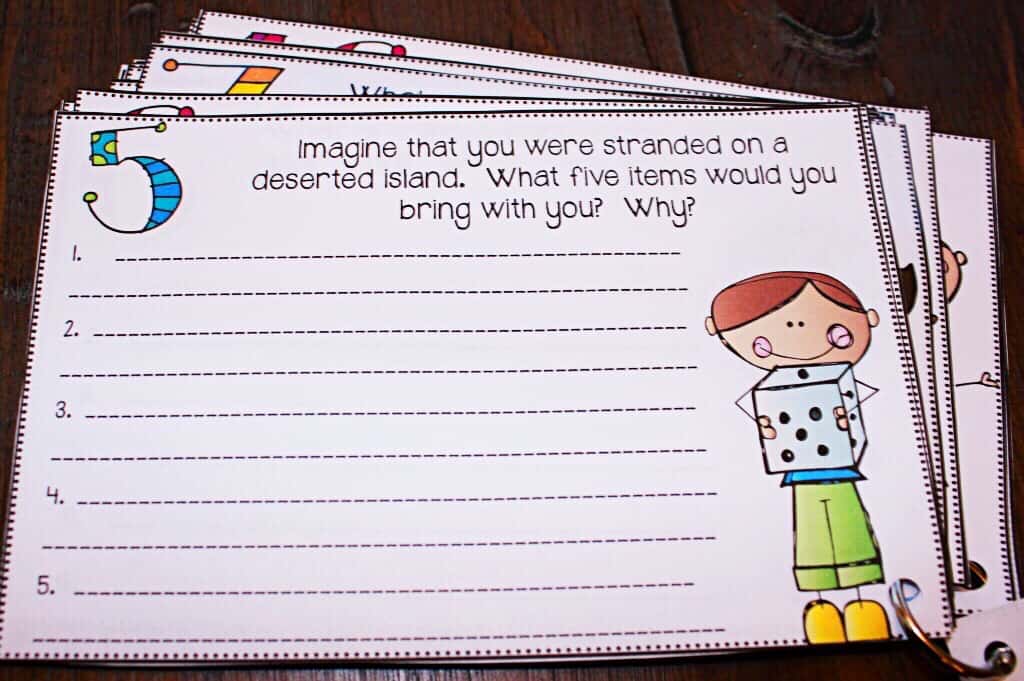 5
Imagine that you were stranded on a
deserted island. What five items would you
bring with you? Why?
1.
2.
3.
4.
5.